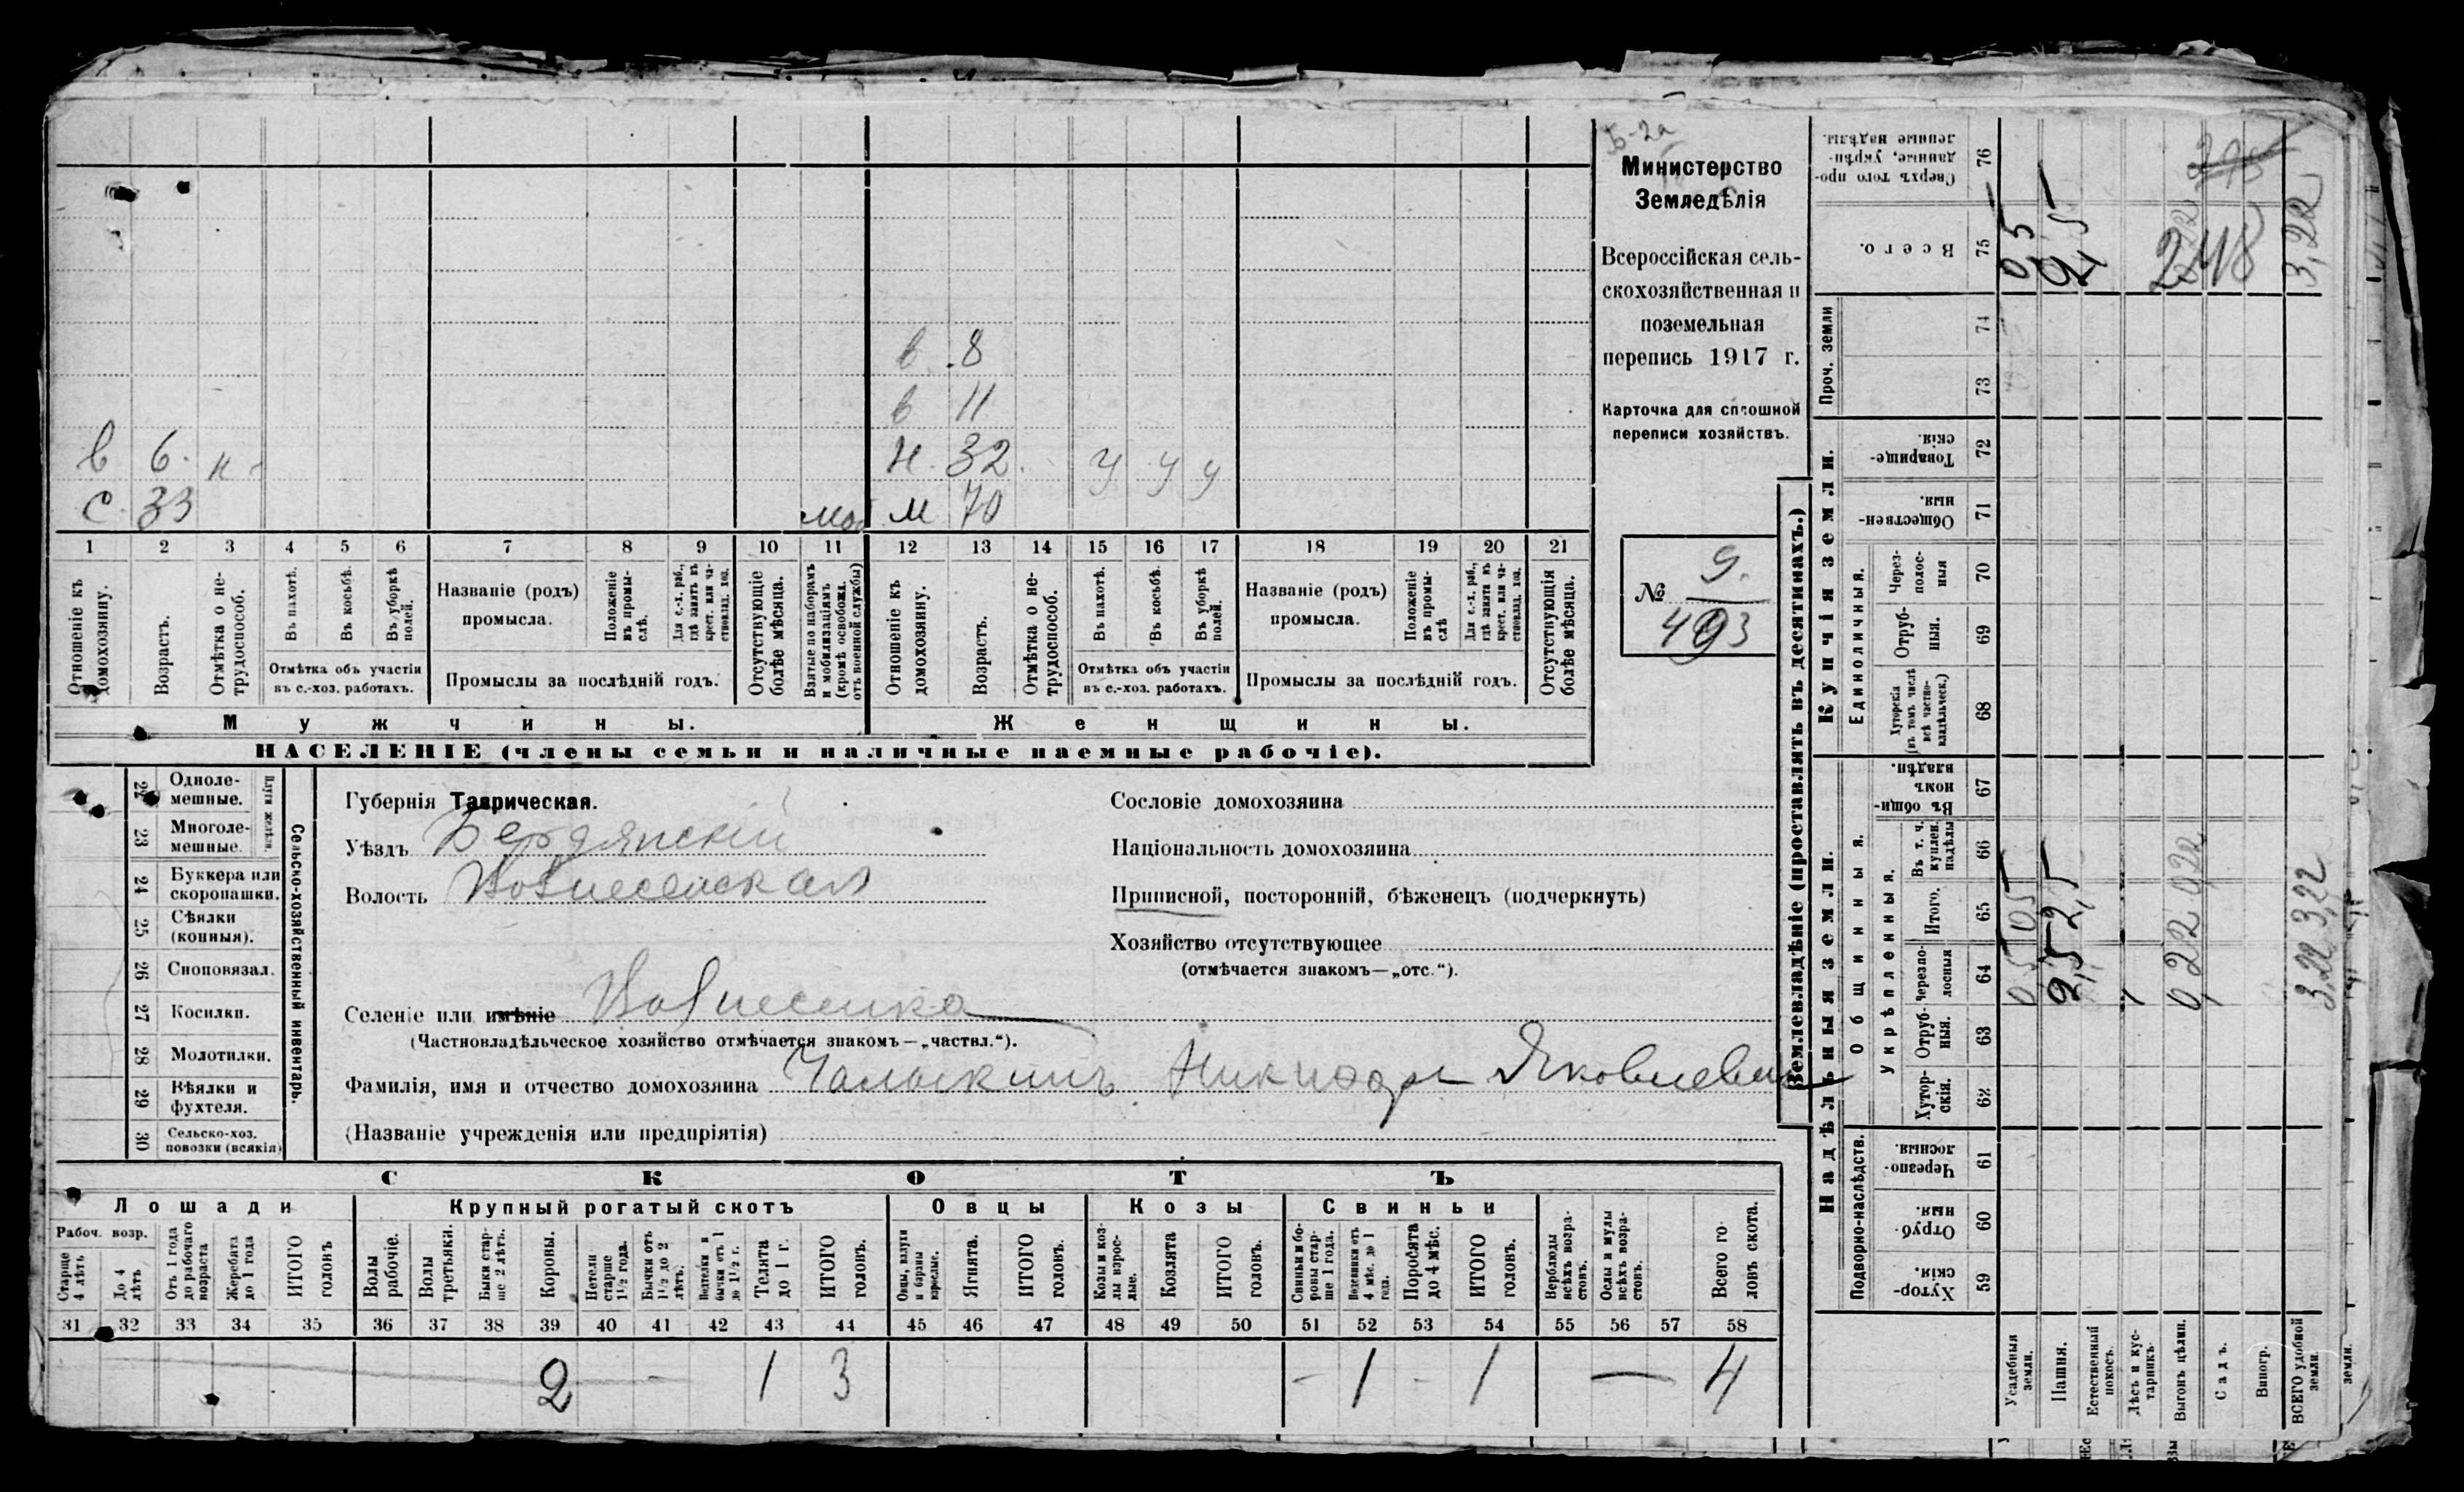 Б-2а
Министерство
Земледѣлія
Всероссійская сель-
скохозяйственная и
поземельная
перепись 1917 г.
Карточка для сплошной
переписи хозяйствъ.
№ 9.
493
в 8
в 11
в 6. н Н. 32. у у у
с. 33 моб м 70
1 2 3 4 5 6 7 8 9 10 11 12 13 14 15 16 17 18 19 20 21
Отношеніе къ домохозяину.
Возрастъ.
Отмѣтка о не-трудоспособ.
Въ пахотѣ.
Въ косьбѣ.
Въ уборкѣ полей.
Отмѣтка объ участіи
въ с.-хоз. работахъ.
Названіе (родъ)
промысла.
Положеніе въ промы-слѣ.
Для с.-х. раб., гдѣ занятъ въ крест. или ча-стновлад. хоз.
Промыслы за послѣдній годъ.
Отсутствующіе болѣе мѣсяца.
Взятые по наборамъ и мобилизаціямъ (кромѣ освобожд. отъ военной службы)
Отношеніе къ домохозяину.
Возрастъ.
Отмѣтка о не-трудоспособ.
Въ пахотѣ.
Въ косьбѣ.
Въ уборкѣ полей.
Отмѣтка объ участіи
въ с.-хоз. работахъ.
Названіе (родъ)
промысла.
Положеніе въ промы-слѣ
Для с.-х. раб., гдѣ занята въ крест. или ча-стновлад. хоз.
Промыслы за послѣдній годъ.
Отсутствующія болѣе мѣсяца.
Мужчины. Женщины.
НАСЕЛЕНІЕ (члены семьи и наличные наемные рабочіе).
22 Одноле-мешные.
23 Многоле-мешные.
Плуги желѣзн.
24 Буккера или скоропашки.
25 Сѣялки (конныя).
26 Сноповязал.
27 Косилки.
28 Молотилки.
29 Вѣялки и фухтеля.
30 Сельско-хоз. повозки (всякія)
Сельско-хозяйственный инвентарь.
Губернія Таврическая.
Уѣздъ Бердянскій
Волость Вознесенская
Селеніе или имѣніе Вознесенка
(Частновладѣльческое хозяйство отмѣчается знакомъ—„частвл.“).
Фамилія, имя и отчество домохозяина Чалыкинъ Никифоръ Яковлевичъ
(Названіе учрежденія или предпріятія)
Сословіе домохозяина
Національность домохозяина
Приписной, посторонній, бѣженецъ (подчеркнуть)
Хозяйство отсутствующее
(отмѣчается знакомъ—„отс.“).
СКОТЪ
Лошади Крупный рогатый скотъ Овцы Козы Свиньи
Рабоч. возр.
Старше 4 лѣтъ
До 4 лѣтъ
Отъ 1 года до рабочаго возраста
Жеребята до 1 года
ИТОГО головъ
Волы рабочіе.
Волы третьяки.
Быки стар-ше 2 лѣтъ.
Коровы.
Нетели старше 1½ года.
Бычки отъ 1½ до 2 лѣтъ.
Подтелки и бычки отъ 1 до 1½ г.
Телята до 1 г.
ИТОГО головъ.
Овцы, валухи и бараны взрослые.
Ягнята.
ИТОГО головъ.
Козы и коз-лы взрос-лые.
Козлята
ИТОГО головъ.
Свиньи и бо-ровы стар-ше 1 года.
Подсвинки отъ 4 мѣс. до 1 года.
Поросята до 4 мѣс.
ИТОГО головъ.
Верблюды всѣхъ возра-стовъ.
Ослы и мулы всѣхъ возра-стовъ.
Всего го-ловъ скота.
31 32 33 34 35 36 37 38 39 40 41 42 43 44 45 46 47 48 49 50 51 52 53 54 55 56 57 58
2 — 1 3 — 1 - 1 — 4
Землевладѣніе (проставлять въ десятинахъ.)
Надѣльныя земли.
Купчія земли.
Проч. земли
Подворно-наслѣдств.
Общинныя.
Укрѣпленныя.
Единоличныя.
76 Сверхъ того про-данные, укрѣп-ленные надѣлы.
75 Всего.
74
73
72 Товарище-скія.
71 Обществен-ныя.
70 Через-полос-ныя
69 Отруб-ныя.
68 Хуторскія (въ томъ числѣ всѣ частно-владѣльческ.)
67 Въ общи-номъ владѣн.
66 Въ т. ч. куплен. надѣлы
65 Итого.
64 Черезпо-лосныя
63 Отруб-ныя.
62 Хутор-скія.
61 Черезпо-лосныя
60 Отруб-ныя.
59 Хутор-скія.
Усадебныя земли. 05 05 05
Пашня. 2,5 2,5 2,5
Естественный покосъ.
Лѣсъ и кус-тарникъ.
Выгонъ цѣлин. 0,22 022
248
Садъ.
Виногр.
ВСЕГО удобной земли. 3,22 3,22 3,22
земли.